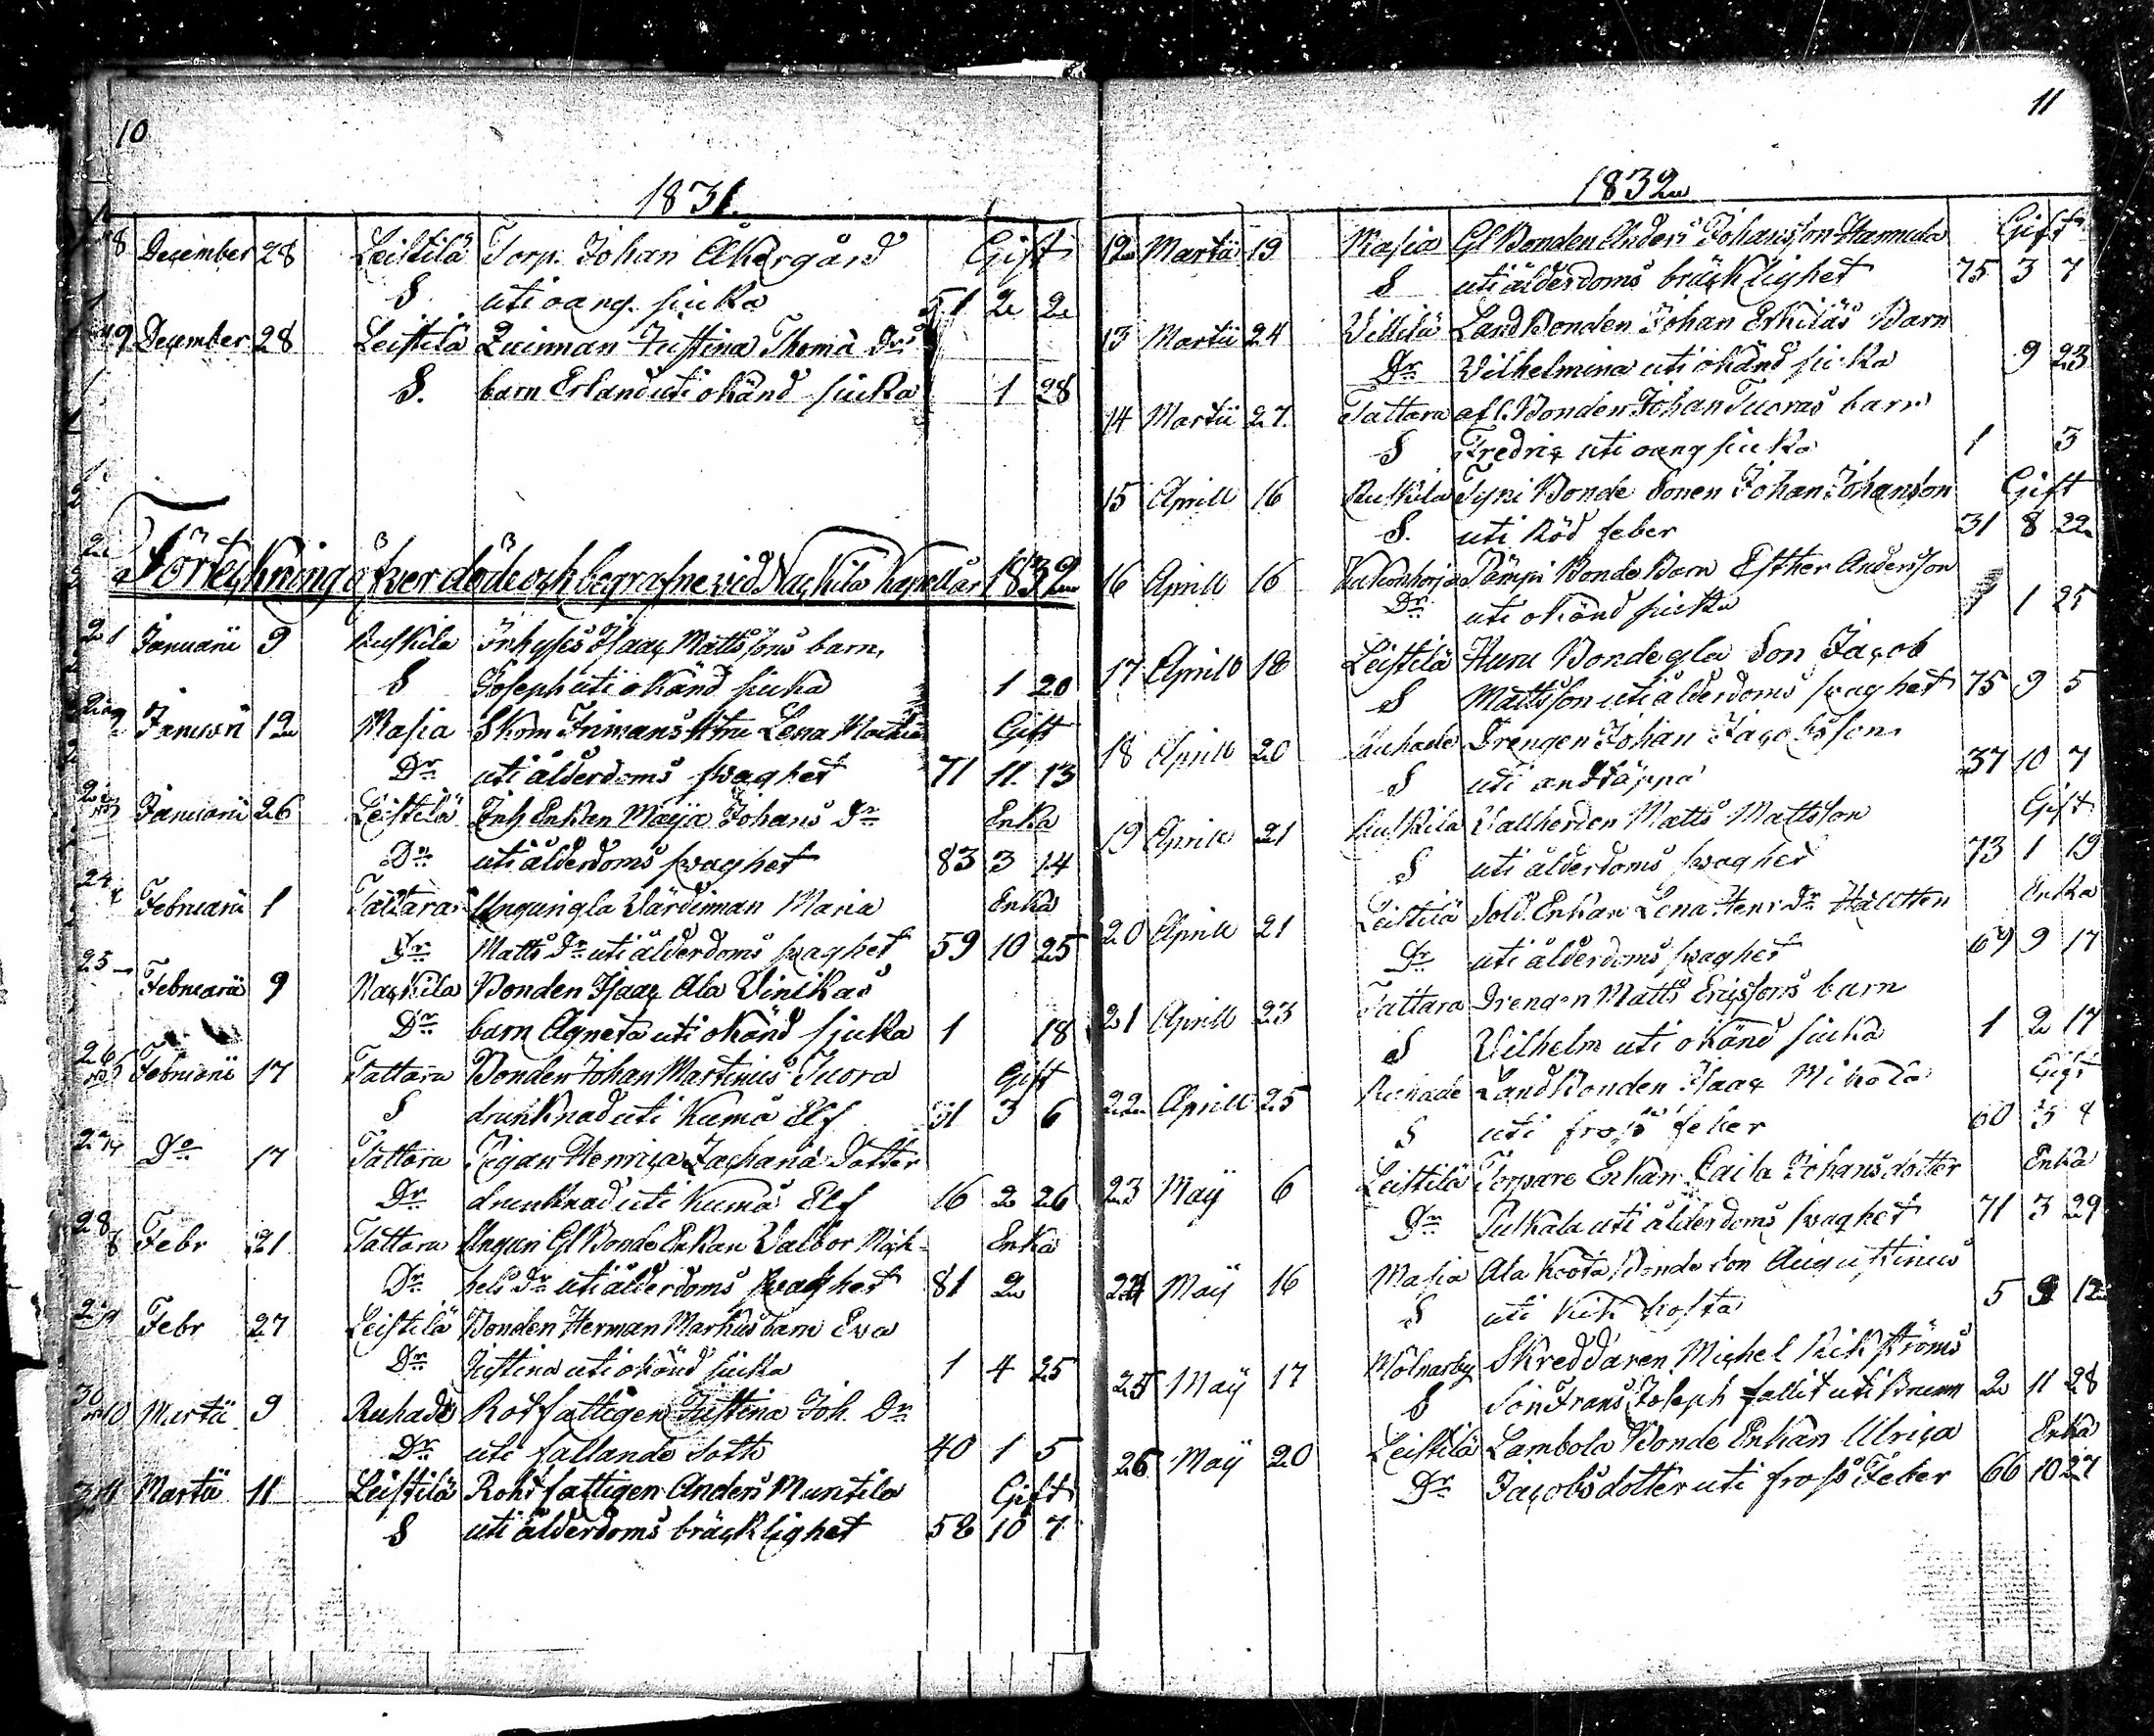 10
1831.
8 December 28 Leistilä Torp. Johan Åkergård Gift
S uti oang. siuka 51 2 2
49 December 28 Leistilä Quinnan Justina Thomä Drs
S. barn Erland uti okänd siuka 1 28
Förteckning öfver döde och begrafne vid Nackila Capell år 1832
1 Januarii 9 Ruskila Inhyses Isaac Mattssons barn,
S Joseph uti okänd siuka 1 20
2 Januarii 12 Masia Skom Frimans Hstru Lena Gift
Dr uti ålderdoms swaghet 71 11 13
Januarii 26 Leistilä Inh Enkan Maija Johans Dr Enka
Dr uti ålderdoms swaghet 83 3 14
Februarii 1 Tattara Ungungla Värdinnan Maria Enka
Dr Matts Dr uti ålderdoms swaghet 59 10 25
Februarii 9 Nackila Bonden Isaac Ala Vinikas
Dr barn Agneta uti okänd sjuka 1 18
Februarii 17 Tattara Bonden Johan Martinus Tuora Gift
S drunknad uti Kumå Elf 31 3 6
Do 17 Tattara Pigan Henrica Zachariä Dotter
Dr drunknad uti Kumå Elf 16 2 26
8 Febr 21 Tattara Ungun Gl Bonde Enkan Valbor Mich- Enka
Dr hels Dr uti ålderdoms swaghet 81 2
9 Febr 27 Leistilä Bonden Herman Markus barn Eva
Dr Justina uti okänd siuka 1 4 25
10 Martii 9 Ruhade Rotfattigen Justina Joh. Dr
Dr uti fallande soth 40 1 5
11 Martii 11 Leistilä Rothfattigen Anders Muntila Gift
S uti ålderdoms bräcklighet 58 10 7
11
1832
12 Martii 19 Masia Gl Bonden Anders Johansson Hannula Gift
S uti ålderdoms bräcklighet 75 3 7
13 Martii 24 Villilä Land Bonden Johan Erkiläs Barn
Dr Vilhelmina uti okänd siuka 9 23
14 Martii 27. Tattara afl. Bonden Johan Tuoras barn
S Fredric uti oang siuka 1 3
15 Aprill 16 Ruskila Tyni Bonde Sonen Johan Johanson Gift
S. uti Röd feber 31 8 22
16 Aprill 16 Pämpi Bonde Barn Esther Andersson
Dr uti okänd siuka 1 25
17 Aprill 18 Leistilä Huru Bonde gla Son Jacob
S Mattsson uti ålderdoms swaghet 75 9 5
18 Aprill 20 Ruhade Drengen Johan Jacobsson
S uti andtäppa 37 10 7
19 Aprill 21 Ruskila Vallherden Matts Mattsson Gift
S uti ålderdoms swaghet 73 1 19
20 Aprill 21 Leistilä Sold. Enkan Lena Henr Dr Enka
Dr uti ålderdoms swaghet 69 9 17
21 Aprill 23 Tattara Drengen Matts Ericssons barn
S Vilhelm uti okänd siuka 1 2 17
22 Aprill 25 Ruhade Land Bonden Isaac Mikola Gift
S uti fross feber 60 5 4
23 Maij 6 Leistilä Torpare Enkan Caisa Johansdotter Enka
Dr Pukala uti ålderdoms swaghet 71 3 29
24 Maij 16 Masia Ala Koota Bonde Son Augustinus
S uti kik hosta 5 9 12
25 Maij 17 Mölnarby Skreddaren Michel Rikströms
S Son Frans Joseph fallit uti Brunn 2 11 28
26 Maij 20 Leistilä Lambola Bonde Enkan Ulrica Enka
Dr Jacobsdotter uti fross Feber 66 10 27